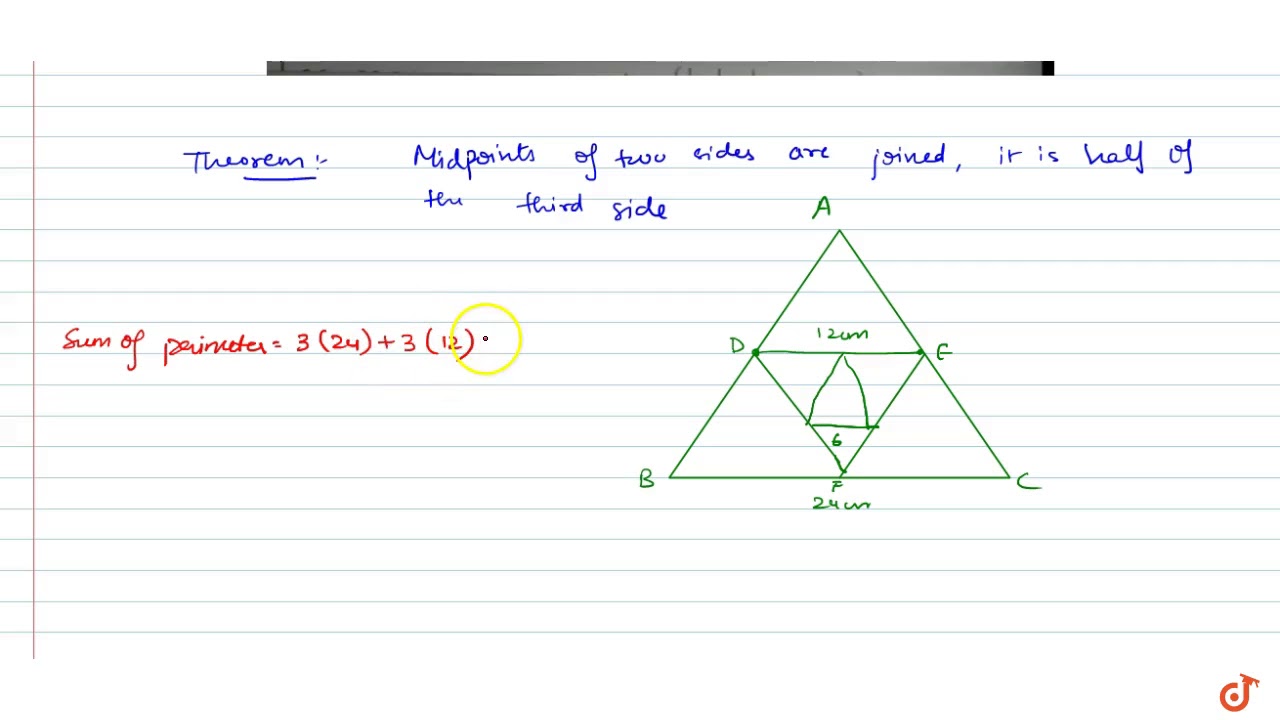 Theorem:- Midpoints of two sides are joined, it is half of
the third side
A
Sum of perimeter = 3 (24) + 3 (12)
12cm
D
E
6
B
F
C
24cm